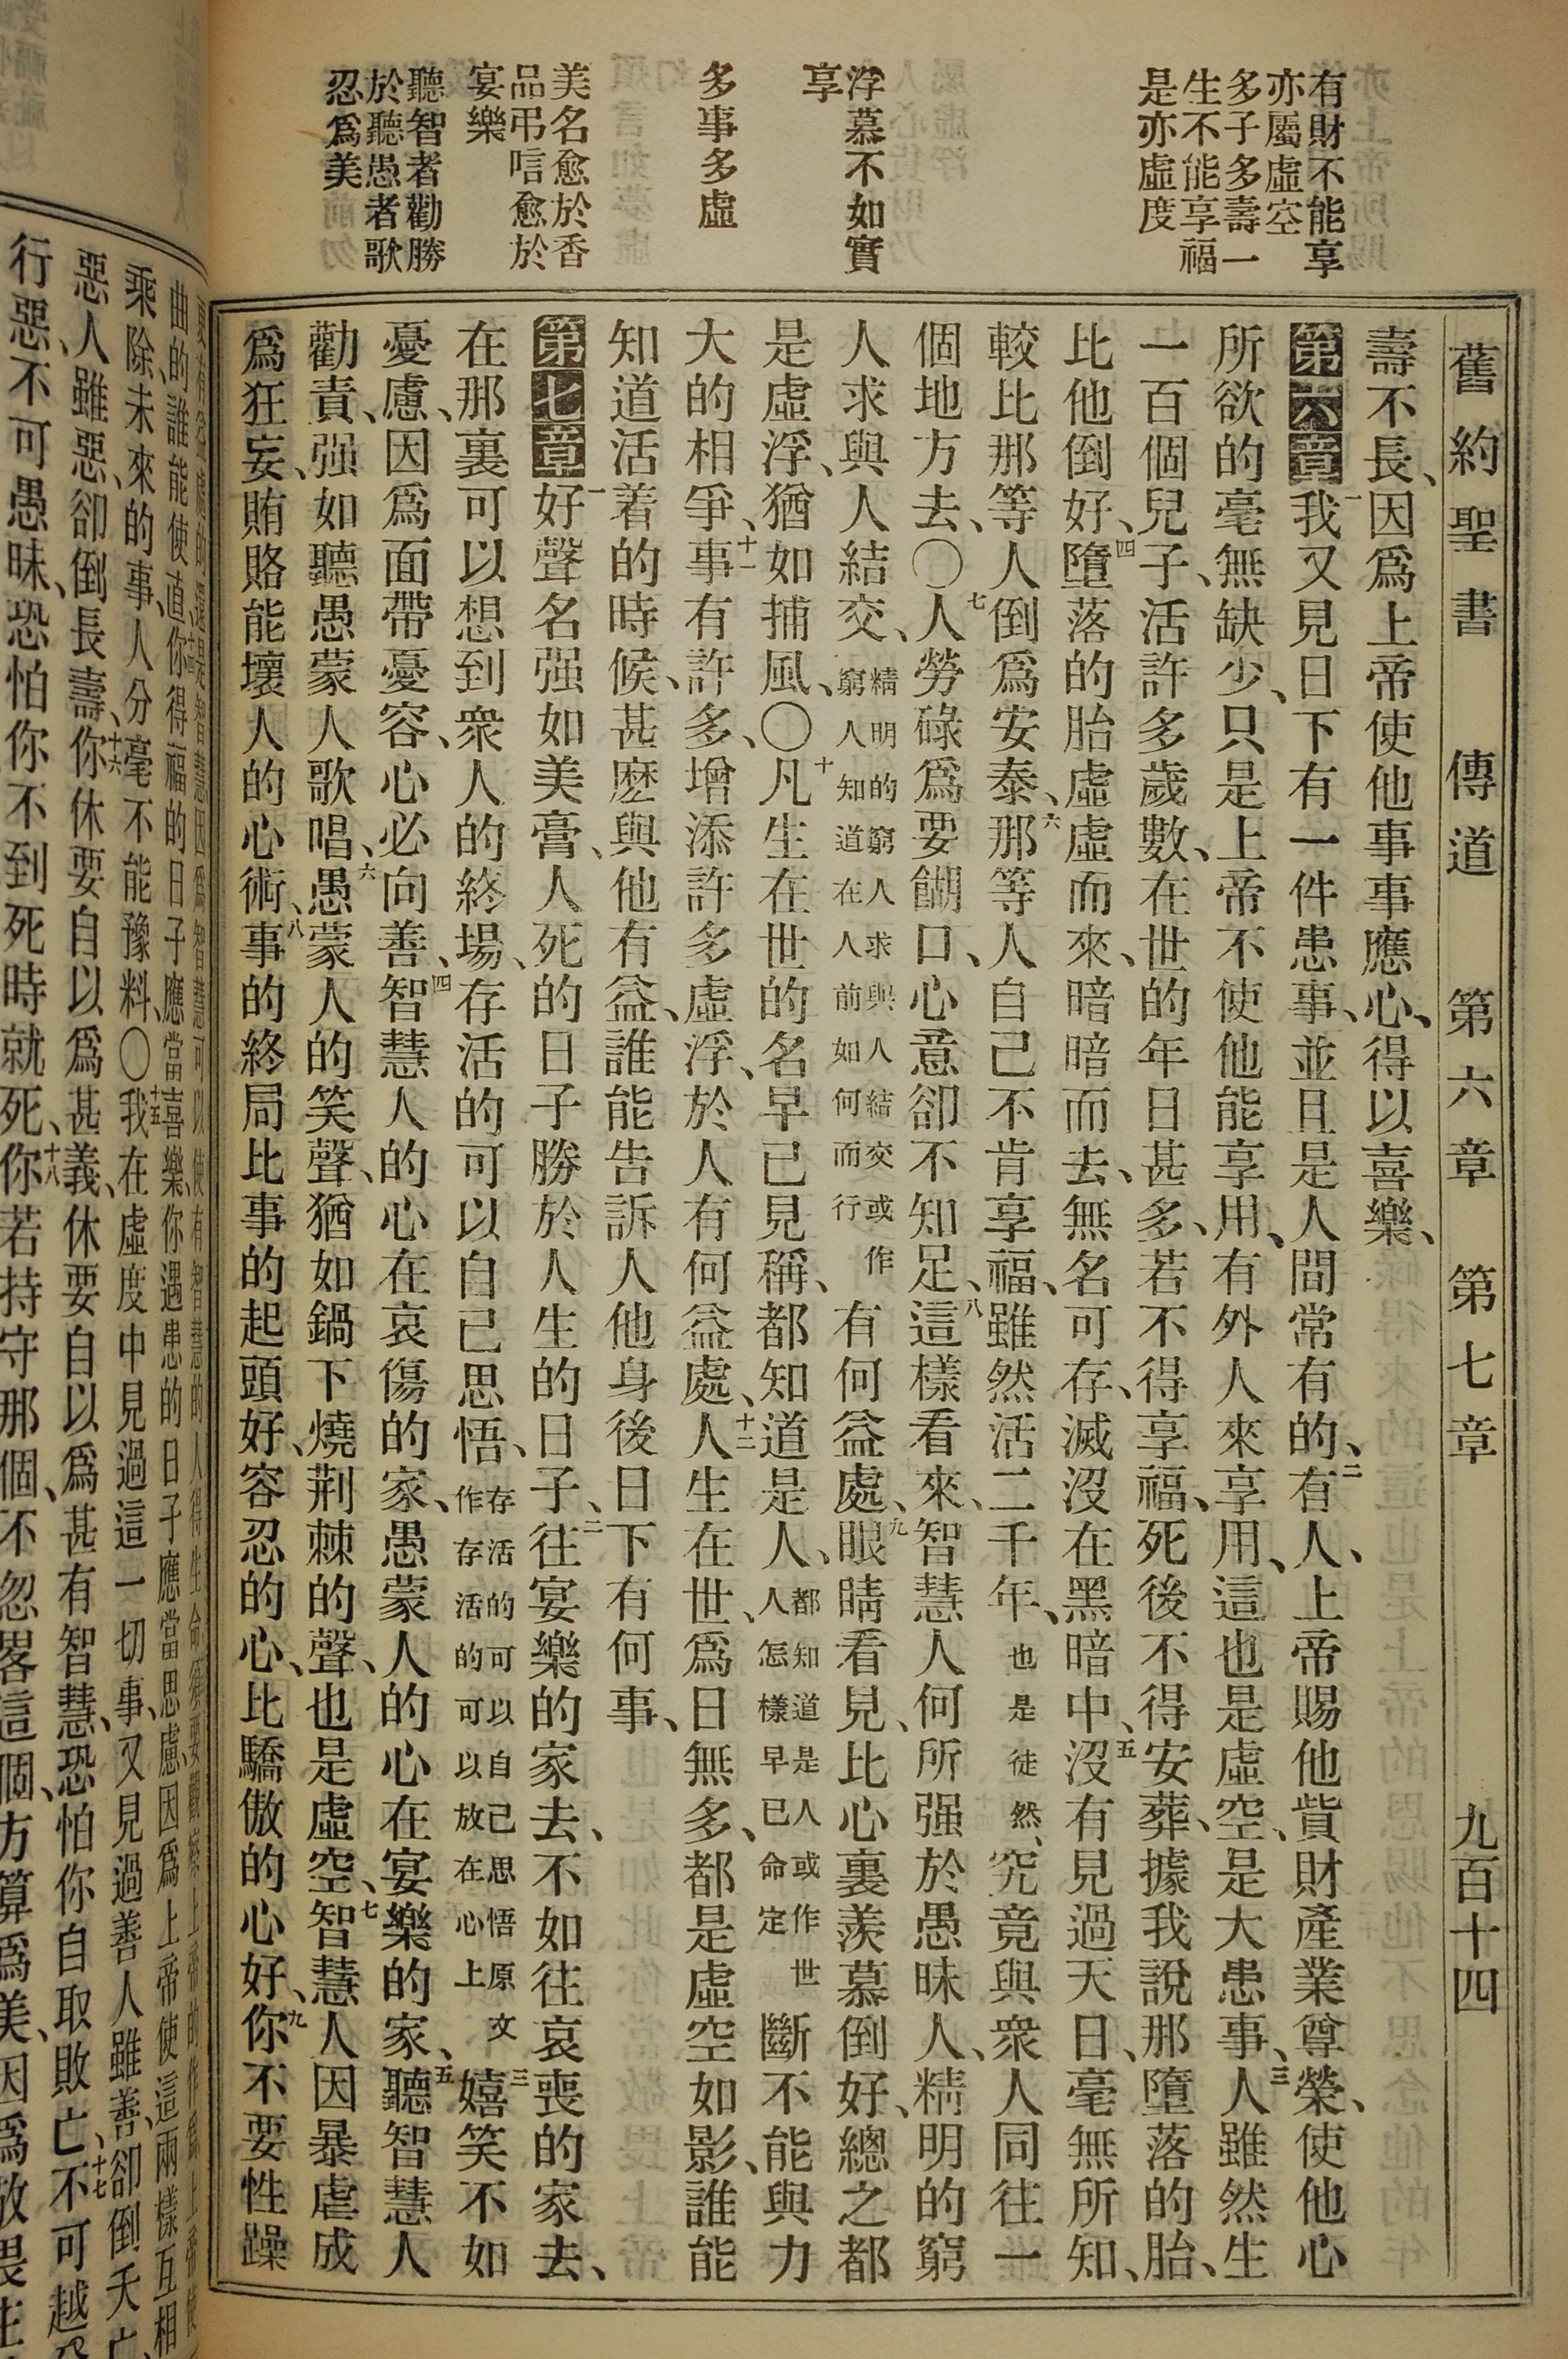 舊約聖書 傳道 第六章 第七章 九百十四
有財不能享
亦屬虛空
多子多壽一
生不能享福
是亦虛度
浮慕不如實
享
多事多虛
美名愈於香
品弔唁愈於
宴樂
聽智者勸勝
於聽愚者歌
忍爲美
壽不長、因爲上帝使他事事應心、得以喜樂、
第六章 一我又見日下有一件患事、並且是人間常有的、二有人、上帝賜他貲財產業尊榮、使他心
所欲的毫無缺少、只是上帝不使他能享用、有外人來享用、這也是虛空、是大患事、三人雖然生
一百個兒子、活許多歲數、在世的年日甚多、若不得享福、死後不得安葬、據我說那墮落的胎、
比他倒好、四墮落的胎虛虛而來、暗暗而去、無名可存、滅沒在黑暗中、五沒有見過天日、毫無所知、
較比那等人倒爲安泰、六那等人自己不肯享福、雖然活二千年、也是徒然、究竟與衆人同往一
個地方去、〇七人勞碌爲要餬口、心意卻不知足、八這樣看來、智慧人何所强於愚昧人、精明的窮
人求與人結交、精明的窮人求與人結交或作窮人知道在人前如何而行有何益處、九眼睛看見、比心裏羨慕倒好、總之都
是虛浮、猶如捕風、〇十凡生在世的名早已見稱、都知道是人、都知道是人或作世人怎樣早已命定斷不能與力
大的相爭、十一事有許多、增添許多虛浮、於人有何益處、十二人生在世、爲日無多、都是虛空如影、誰能
知道活着的時候、甚麽與他有益、誰能告訴人他身後日下有何事、
第七章 一好聲名强如美膏、人死的日子勝於人生的日子、二往宴樂的家去、不如往哀喪的家去、
在那裏可以想到衆人的終場、存活的可以自己思悟、存活的可以自己思悟原文作存活的可以放在心上三嬉笑不如
憂慮、因爲面帶憂容、心必向善、四智慧人的心在哀傷的家、愚蒙人的心在宴樂的家、五聽智慧人
勸責、强如聽愚蒙人歌唱、六愚蒙人的笑聲、猶如鍋下燒荆棘的聲、也是虛空、七智慧人因暴虐成
爲狂妄、賄賂能壞人的心術、八事的終局比事的起頭好、容忍的心、比驕傲的心好、九你不要性躁
曲的、誰能使直、你得福的日子應當喜樂、你遇患的日子應當思慮、因爲上帝使這兩樣互相
乘除、未來的事、人分毫不能豫料、〇十五我在虛度中見過這一切事、又見過善人雖善、卻倒夭亡、
惡人雖惡、卻倒長壽、十六你休要自以爲甚義、休要自以爲甚有智慧、恐怕你自取敗亡、十七不可越
行惡、不可愚昧、恐怕你不到死時就死、十八你若持守那個、不忽畧這個、方算爲美、因爲